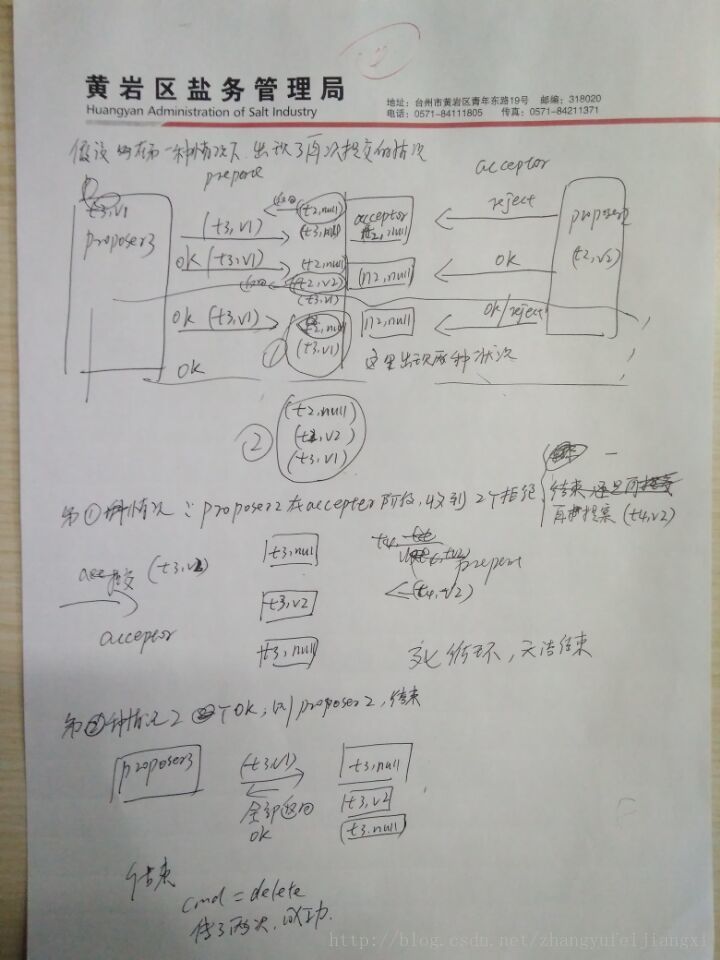 黄岩区盐务管理局
Huangyan Administration of Salt Industry
地址：台州市黄岩区青年东路19号 邮编：318020
电话：0571-84111805 传真：0571-84211371
假设 一种情况下,出现了再次提交的情况
prepare
acceptor
t3,v1
proposer3
(t3,v1)
(t2,null)
(t3,null)
acceptor
t2,null
reject
proposer2
(t2,v2)
OK (t3,v1)
(t2,null)
(t2,v2)
(t3,v1)
(n2,null)
OK
OK (t3,v1)
(t2,null)
(t3,v1)
n2,null
OK/reject
①
OK
这里出现两种状况
②
(t2,null)
(t2,v2)
(t3,v1)
第①种情况: proposer2在accepter阶段,收到2个拒绝
结束
再提案(t4,v2)
提交 (t3,v2)
acceptor
t3,null
t3,v2
t3,null
prepare
(t4,v2)
死循环,无法结束
第②种情况2 个OK,则proposer2,结束
proposer3
(t3,v1)
全部返回
OK
t3,null
t3,v2
t3.null
结束
cmd = delete
传了两次,成功.
http://blog.csdn.net/zhangyufeijiangxi